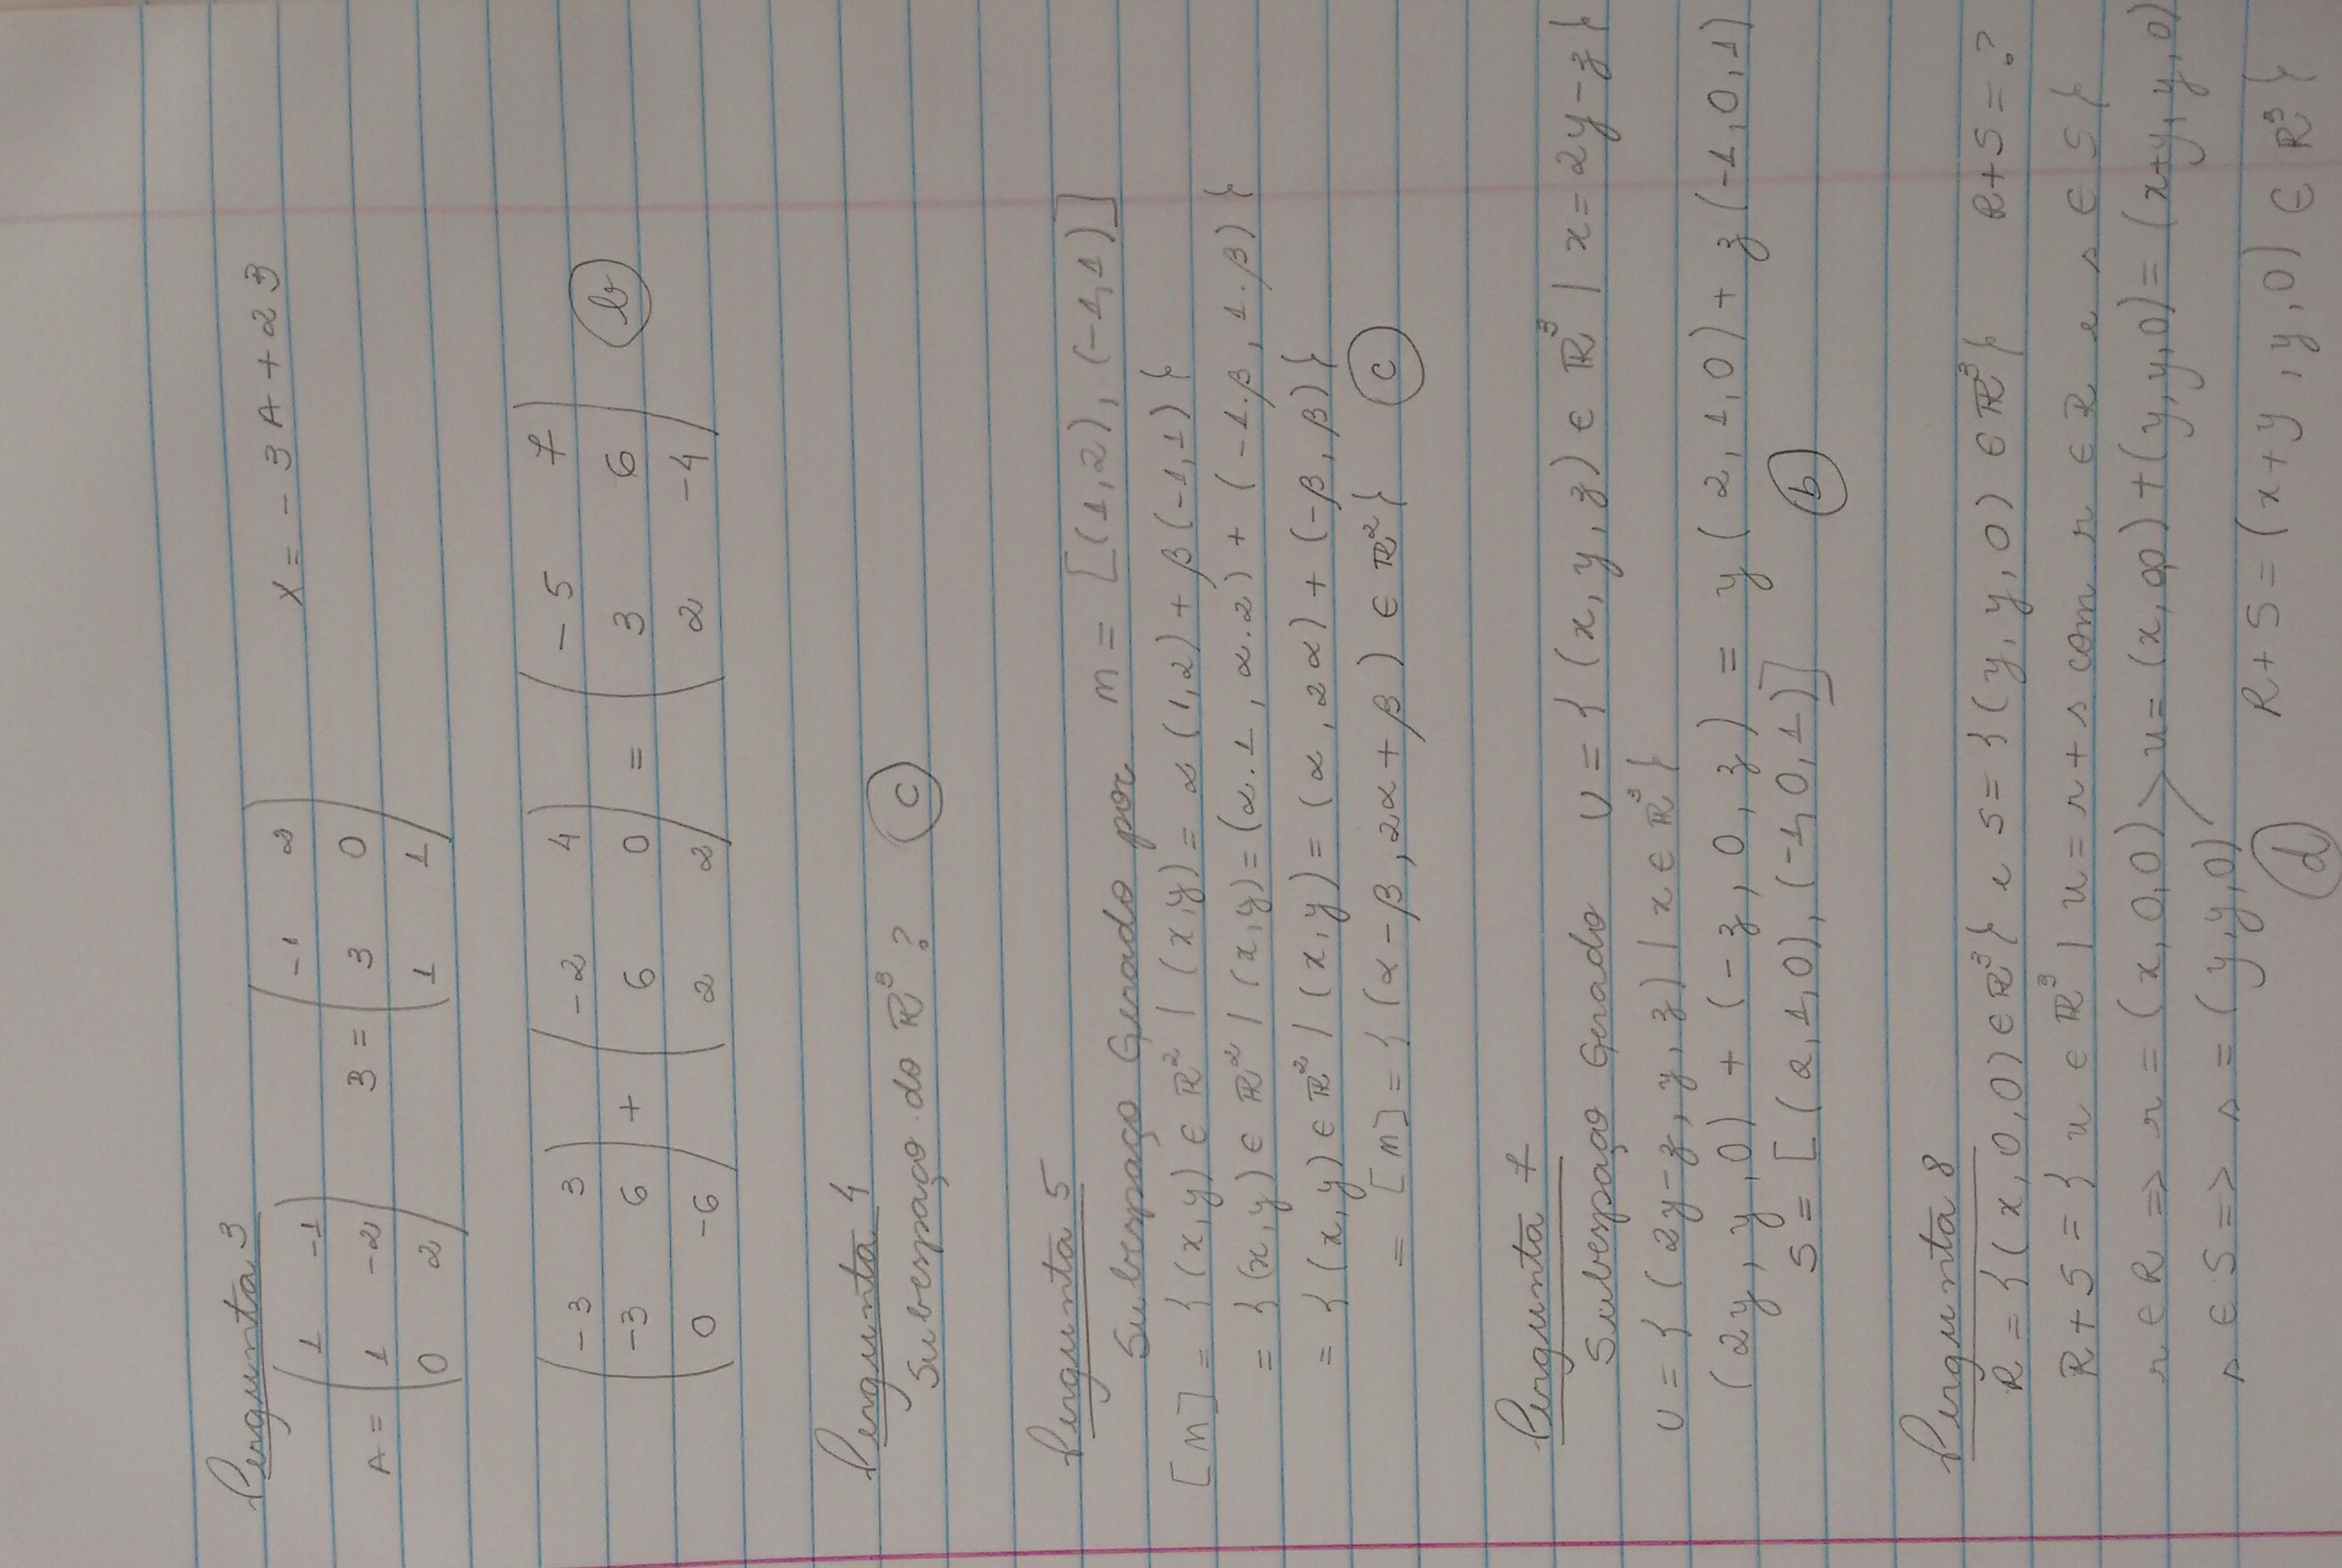 Pergunta 3
A = ( 1 -1 ) B = ( -1 2 ) X = - 3 A + 2 B
( 1 -2 ) ( 3 0 )
( 0 2 ) ( 1 1 )
( -3 3 ) + ( -2 4 ) = ( -5 7 )
( -3 6 ) ( 6 0 ) ( 3 6 ) b
( 0 -6 ) ( 2 2 ) ( 2 -4 )
Pergunta 4
Subespaço do ℝ³ ? c
Pergunta 5
Subespaço Gerado por m = [(1,2), (-1,1)]
[m] = { (x,y) ∈ ℝ² / (x,y) = α (1,2) + β (-1,1) }
= { (x,y) ∈ ℝ² / (x,y) = (α.1 , α.2) + ( -1.β , 1.β) }
= { (x,y) ∈ ℝ² / (x,y) = (α , 2α) + (-β , β) }
= [m] = { (α-β , 2α+β ) ∈ ℝ² } c
Pergunta 7
Subespaço Gerado U = { (x, y, z) ∈ ℝ³ / x = 2y-z }
U = { (2y-z, y, z) / x ∈ ℝ³ }
(2y, y, 0) + (-z, 0, z) = y ( 2, 1, 0) + z (-1, 0, 1)
S = [ (2,1,0), (-1,0,1)] b
Pergunta 8
R = { (x, 0,0) ∈ ℝ³ } e S = { (y, y, 0) ∈ ℝ³ } R+S = ?
R + S = { u ∈ ℝ³ / u = r + s com r ∈ R e s ∈ S }
r ∈ R => r = (x, 0,0) > u = (x, 0,0) + (y, y, 0) = (x+y, y, 0)
s ∈ S => s = (y, y, 0)
d R+S = (x+y , y, 0) ∈ ℝ³ }